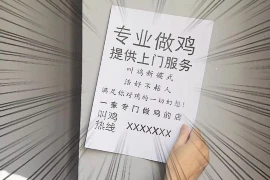 专业做鸡
提供上门服务
叫鸡新模式
活好不粘人
满足你对鸡的一切幻想!
一家专门做鸡的店
叫鸡
热线 XXXXXXX